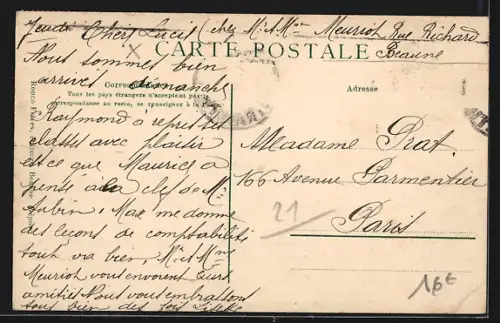 Jeudi Chère Lucie (chez Mr et Mme Meuriot Rue Richard
Beaune
CARTE POSTALE
Nous sommes bien
arrivés dimanche
Correspondance
Tous les pays étrangers n'acceptent pas la
correspondance au recto, se renseigner à la Poste
Adresse
Raymond a repris ses
classes avec plaisir
est ce que Maurice a
pensé à la clef de Mr
Aubin. Max me donne
des leçons de comptabilité
tout va bien, Mr et Mme
Meuriot vous envoient leurs
amitiés Nous vous embrassons
tous bien des fois
Madame Prat.
166 Avenue Parmentier
Paris
21
16€